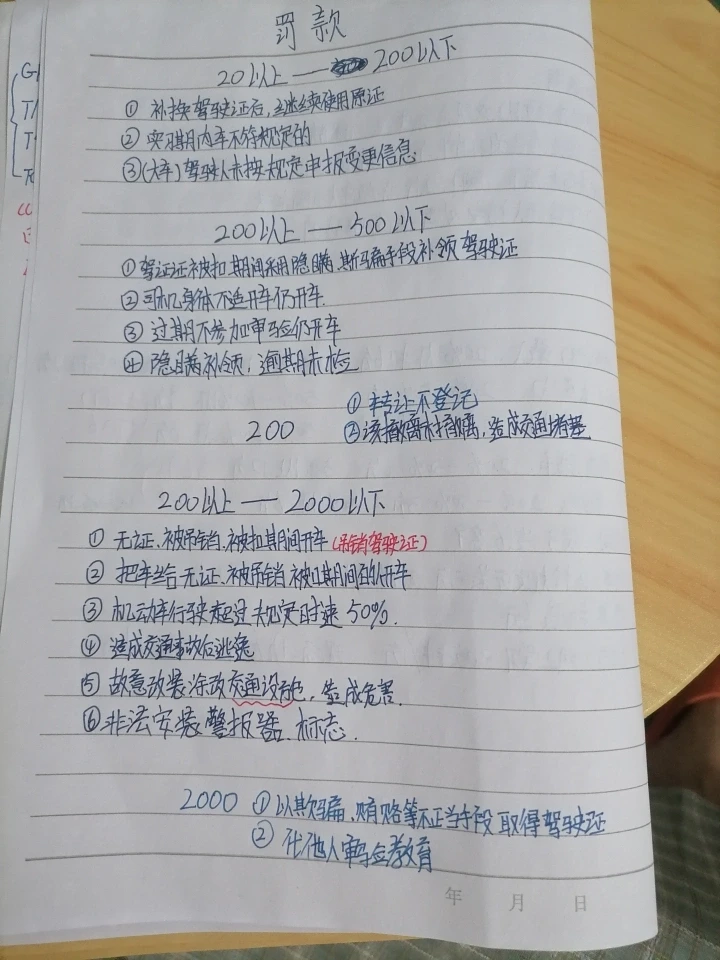 罚款
20以上 — 200以下
① 补换驾驶证后,继续使用原证
② 实习期内车不符规定的
③(大车)驾驶人未按规定申报变更信息
200以上 — 500以下
① 驾证证被扣期间采用隐瞒、欺骗手段补领驾驶证
② 司机身体不适开车仍开车.
③ 过期不参加审验仍开车
④ 隐瞒补领,逾期未检
① 转让不登记
200 ② 该撤离未撤离,造成交通堵塞
200以上 — 2000以下
① 无证、被吊销、被扣期间开车(吊销驾驶证)
② 把车给无证、被吊销、被扣期间的人开车
③ 机动车行驶超过规定时速50%.
④ 造成交通事故后逃逸
⑤ 故意改装涂改交通设备,造成危害.
⑥ 非法安装警报器、标志.
2000 ① 以欺骗、贿赂等不正当手段取得驾驶证
② 代他人审验教育
年 月 日